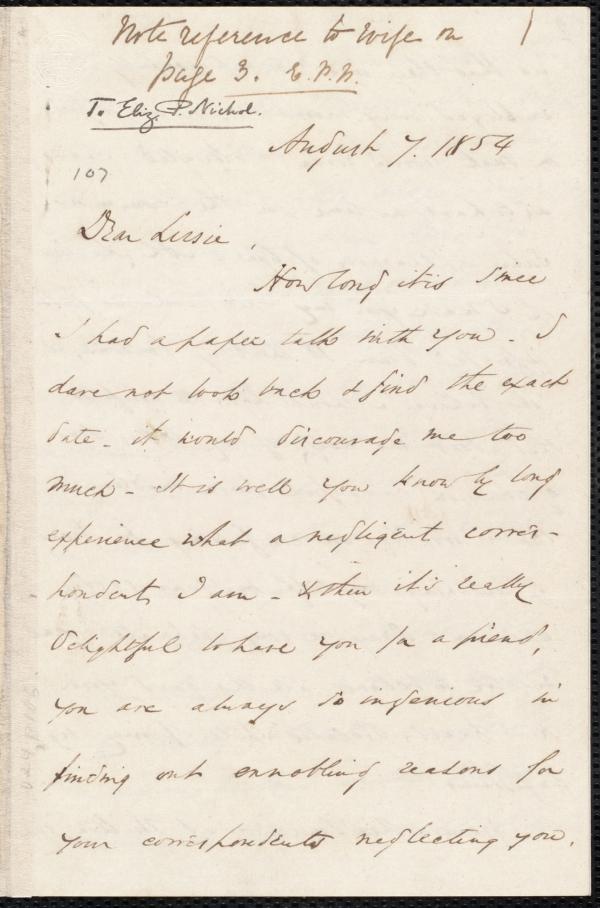 Note reference to Wife on
page 3. E. P. N.
To Eliz. P. Nichol.
August 7. 1854
107
Dear Lizzie,
How long it is since
I had a paper talk with you - I
dare not look back & find the exact
date - it would discourage me too
much - It is well you know by long
experience what a negligent corres-
pondent I am - & then it is really
delightful to have you for a friend,
you are always so ingenious in
finding out ennobling reasons for
your correspondents neglecting you.